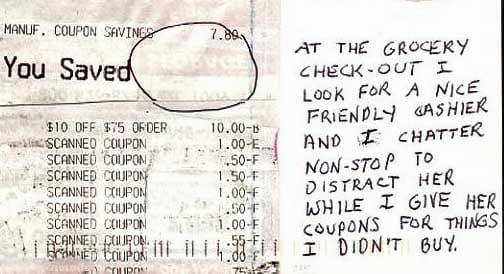 MANUF. COUPON SAVINGS 7.80
You Saved
$10 OFF $75 ORDER 10.00-B
SCANNED COUPON 1.00-E
SCANNED COUPON .50-F
SCANNED COUPON 1.50-F
SCANNED COUPON 1.00-F
SCANNED COUPON .50-F
SCANNED COUPON 1.00-F
SCANNED COUPON .55-F
SCANNED COUPON 1.00-F
COUPON 75
AT THE GROCERY
CHECK-OUT I
LOOK FOR A NICE
FRIENDLY CASHIER
AND I CHATTER
NON-STOP TO
DISTRACT HER
WHILE I GIVE HER
COUPONS FOR THINGS
I DIDN'T BUY.